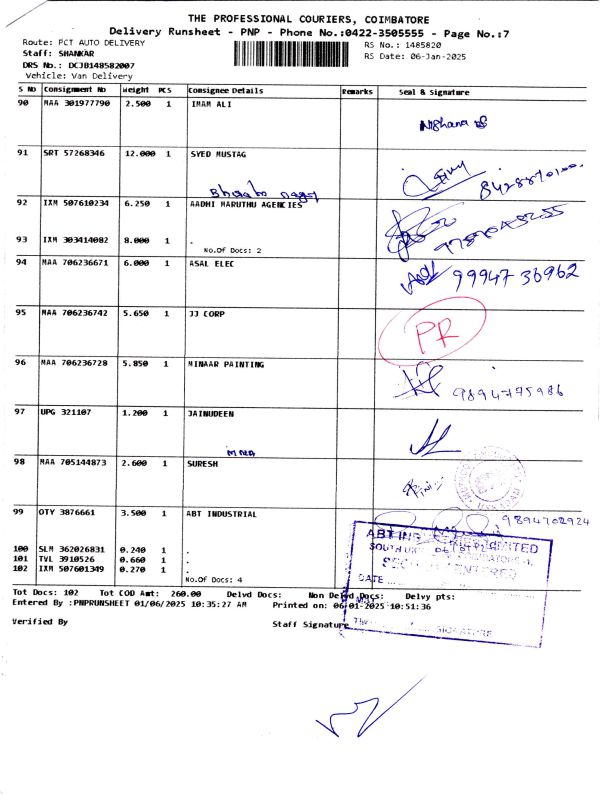 THE PROFESSIONAL COURIERS, COIMBATORE
Delivery Runsheet - PNP - Phone No.:0422-3505555 - Page No.:7
Route: PCT AUTO DELIVERY
RS No.: 1485820
Staff: SHANKAR
RS Date: 06-Jan-2025
DRS No.: DCJB148582007
Vehicle: Van Delivery
S No Consignment No Weight PCS Consignee Details Remarks Seal & Signature
90 MAA 301977790 2.500 1 IMAM ALI
91 SRT 57268346 12.000 1 SYED MUSTAG
92 IXM 507610234 6.250 1 AADHI MARUTHU AGENCIES
93 IXM 303414082 8.000 1 .
No.Of Docs: 2
94 MAA 706236671 6.000 1 ASAL ELEC
99947 36962
95 MAA 706236742 5.650 1 JJ CORP
PR
96 MAA 706236728 5.850 1 MINAAR PAINTING
9894775986
97 UPG 321107 1.200 1 JAINUDEEN
98 MAA 705144873 2.600 1 SURESH
99 OTY 3876661 3.500 1 ABT INDUSTRIAL
9894702924
100 SLM 362026831 0.240 1 .
101 TVL 3910526 0.660 1 .
102 IXM 507601349 0.270 1 .
No.Of Docs: 4
DATE
SIGNATURE
Tot Docs: 102 Tot COD Amt: 260.00 Delvd Docs: Non Delvd Docs: Delvy pts:
Entered By :PNPRUNSHEET 01/06/2025 10:35:27 AM Printed on: 06-01-2025 10:51:36
Verified By
Staff Signature